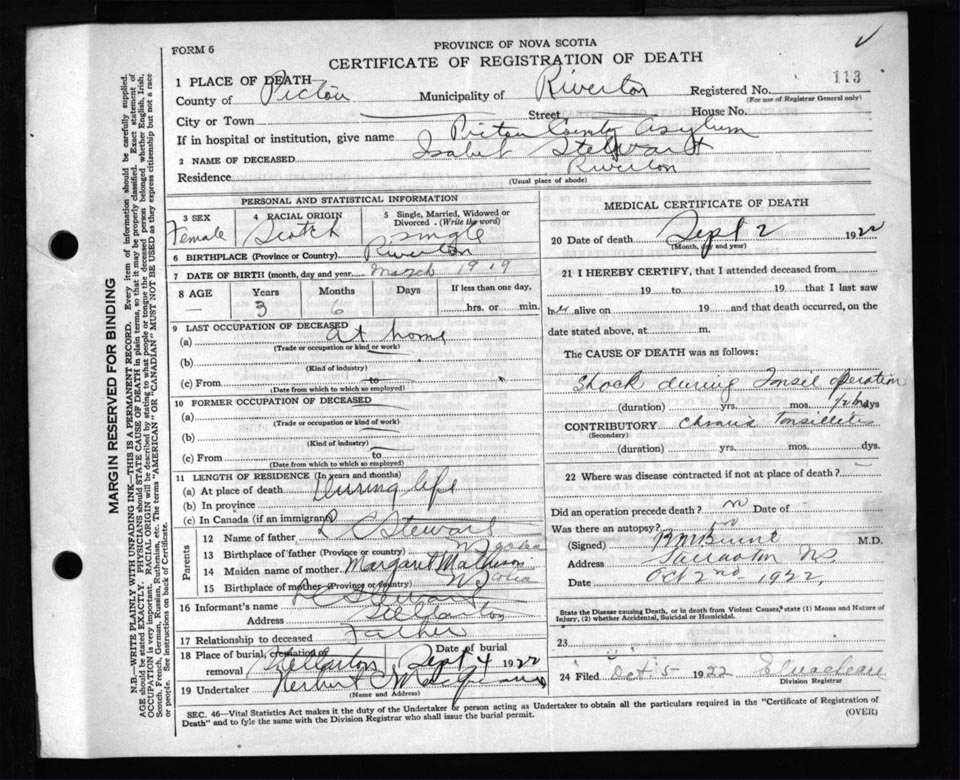 FORM 6
PROVINCE OF NOVA SCOTIA
CERTIFICATE OF REGISTRATION OF DEATH
113
1 PLACE OF DEATH
County of Pictou Municipality of Riverton Registered No.
(For use of Registrar General only)
City or Town Street House No.
If in hospital or institution, give name Pictou County Asylum
2 NAME OF DECEASED Isabel Stewart
Residence Riverton
(Usual place of abode)
PERSONAL AND STATISTICAL INFORMATION
3 SEX Female
4 RACIAL ORIGIN Scotch
5 Single, Married, Widowed or Divorced. (Write the word) Single
6 BIRTHPLACE (Province or Country) Riverton
7 DATE OF BIRTH (month, day and year) March 1919
8 AGE Years Months Days If less than one day,
— 3 6 hrs. or min.
9 LAST OCCUPATION OF DECEASED
(a) At home
(Trade or occupation or kind or work)
(b)
(Kind of industry)
(c) From to
(Date from which to which so employed)
10 FORMER OCCUPATION OF DECEASED
(a)
(Trade or occupation or kind of work)
(b)
(Kind of industry)
(c) From to
(Date from which to which so employed)
11 LENGTH OF RESIDENCE (In years and months)
(a) At place of death During life
(b) In province
(c) In Canada (if an immigrant)
Parents
12 Name of father Stewart
13 Birthplace of father (Province or country) N Scotia
14 Maiden name of mother Margaret Matheson
15 Birthplace of mother (Province or country) N Scotia
16 Informant's name Stewart
Address Stellarton
17 Relationship to deceased Father
18 Place of burial, cremation or removal Stellarton Date of burial Sept 4 1922
19 Undertaker Herbert
(Name and Address)
MEDICAL CERTIFICATE OF DEATH
20 Date of death Sept 2 1922
(Month, day and year)
21 I HEREBY CERTIFY, that I attended deceased from
19 to 19 that I last saw
her alive on 19 and that death occurred, on the
date stated above, at m.
The CAUSE OF DEATH was as follows:
Shock during Tonsil operation
(duration) yrs. mos. dys
CONTRIBUTORY Chronic Tonsillitis
(Secondary)
(duration) yrs. mos. dys.
22 Where was disease contracted if not at place of death?
Did an operation precede death? no Date of
Was there an autopsy? no
(Signed) M.D.
Address NS
Date Oct 2nd 1922,
State the Disease causing Death, or in death from Violent Causes, state (1) Means and Nature of Injury, (2) whether Accidental, Suicidal or Homicidal.
23
24 Filed Oct 5 1922
Division Registrar
SEC. 46—Vital Statistics Act makes it the duty of the Undertaker or person acting as Undertaker to obtain all the particulars required in the "Certificate of Registration of
Death" and to fyle the same with the Division Registrar who shall issue the burial permit.
(OVER)
MARGIN RESERVED FOR BINDING
N.B.—WRITE PLAINLY WITH UNFADING INK—THIS IS A PERMANENT RECORD. Every item of information should be carefully supplied.
AGE should be stated EXACTLY. PHYSICIANS should STATE CAUSE OF DEATH in plain terms, so that it may be properly classified. Exact statement of
OCCUPATION is very important. RACIAL ORIGIN will be described by stating to what people or tongue the deceased person belonged whether English, Irish,
Scotch, French, German, Russian, Ruthenian etc. The terms "AMERICAN" OR "CANADIAN" MUST NOT BE USED as they express citizenship but not a race
or people. See instructions on back of Certificate.